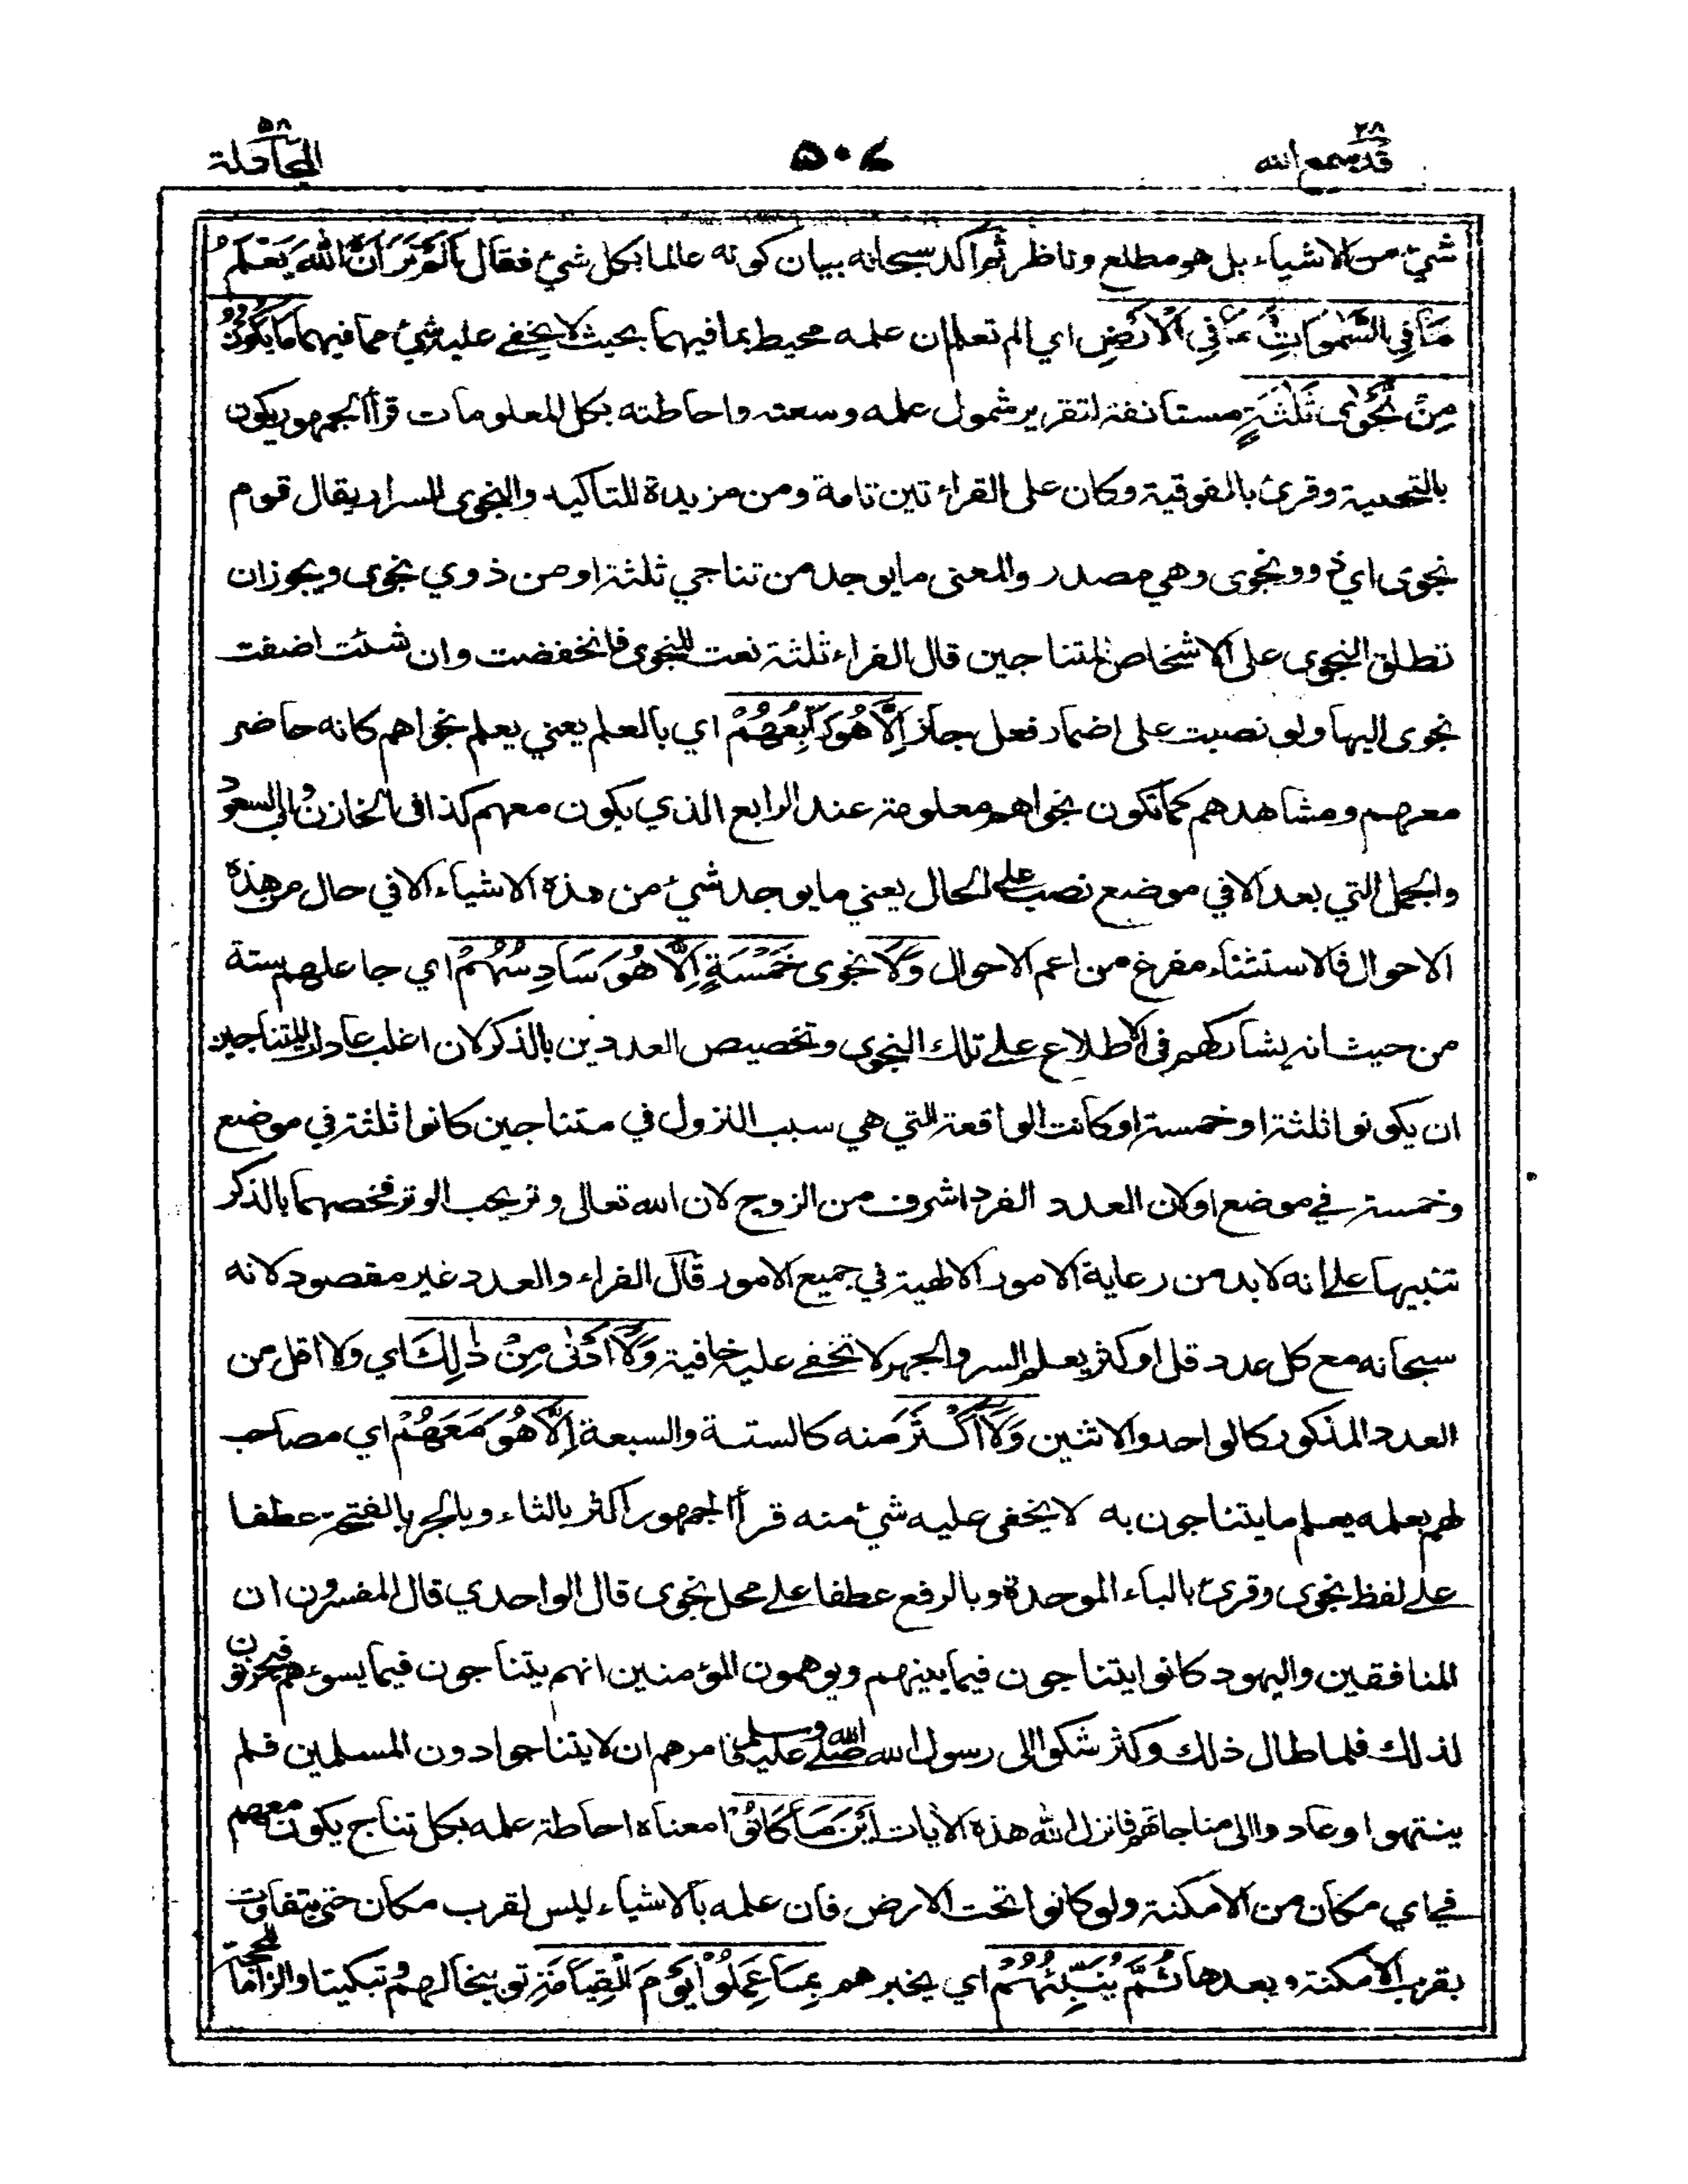 قد سمع الله ٢٨
٥٠٤
المجادلة ٥٨
شيء من الاشياء بل هو مطلع وناظر ثم اكد سبحانه بيان كونه عالما بكل شيء فقال اَلَمْ تَرَ اَنَّ اللهَ يَعْلَمُ
مَا فِي السَّمٰوَاتِ وَمَا فِي الْاَرْضِ اي الم تعلم ان علمه محيط بما فيهما بحيث لا يخفے عليه شيء مما فيهما مَا يَكُوْنُ
مِنْ نَّجْوٰى ثَلٰثَةٍ مستانفة لتقرير شمول علمه وسعته واحاطته بكل المعلومات قرأ الجمهور يكون
بالتحتية وقرئ بالفوقية وكان على القراءتين تامة ومن مزيدة للتاكيد والنجوى السرار يقال قوم
نجوى اي ذوو نجوى وهي مصدر والمعنى ما يوجد من تناجي ثلثة او من ذوي نجوى ويجوز ان
تطلق النجوى على الاشخاص المتناجين قال الفراء ثلثة نعت للنجوى فانخفضت وان شئت اضفت
نجوى اليها ولو نصبت على اضمار فعل جاز اِلَّا هُوَ رَابِعُهُمْ اي بالعلم يعني يعلم نجواهم كانه حاضر
معهم ومشاهدهم كما تكون نجواهم معلومة عند الرابع الذي يكون معهم كذا فى الخازن وابي السعود
والجمل التي بعد الا في موضع نصب على الحال يعني ما يوجد شيء من هذه الاشياء الا في حال من هذه
الاحوال فالاستثناء مفرغ من اعم الاحوال وَلَا نجوى خَمْسَةٍ اِلَّا هُوَ سَادِسُهُمْ اي جاعلهم ستة
من حيث انه يشاركهم فى الاطلاع علے تلك النجوى وتخصيص العددين بالذكر لان اغلب عادات المتناجين
ان يكونوا ثلثة او خمسة او كانت الواقعة التي هي سبب النزول في متناجين كانوا ثلثة في موضع
وخمسة في موضع او لان العدد الفرد اشرف من الزوج لان الله تعالى وتر يحب الوتر فخصهما بالذكر
تنبيها على انه لا بد من رعاية الامور الالهية في جميع الامور قال الفراء والعدد غير مقصود لانه
سبحانه مع كل عدد قل او كثر يعلم السر والجهر لا تخفے عليه خافية وَلَا اَدْنٰى مِنْ ذٰلِكَ اي ولا اقل من
العدد المذكور كالواحد والاثنين وَلَا اَكْثَرَ منه كالستة والسبعة اِلَّا هُوَ مَعَهُمْ اي مصاحب
لهم بعلمه يعلم ما يتناجون به لا يخفى عليه شيء منه قرأ الجمهور اكثر بالثاء وبالجر بالفتحة عطفا
علے لفظ نجوى وقرئ بالباء الموحدة وبالرفع عطفا علے محل نجوى قال الواحدي قال المفسرون ان
المنافقين واليهود كانوا يتناجون فيما بينهم ويوهمون المؤمنين انهم يتناجون فيما يسوءهم فيحزنون
لذلك فلما طال ذلك وكثر شكوا الى رسول الله صلے الله عليه وسلم فامرهم ان لا يتناجوا دون المسلمين فلم
ينتهوا وعادوا الى مناجاتهم فانزل الله هذه الايات اَيْنَ مَا كَانُوْا معناه احاطة علمه بكل تناج يكون معهم
في اي مكان من الامكنة ولو كانوا تحت الارض فان علمه بالاشياء ليس لقرب مكان حتى يتفاوت
بقرب الامكنة وبعدها ثُمَّ يُنَبِّئُهُمْ اي يخبرهم بِمَا عَمِلُوْا يَوْمَ الْقِيَامَةِ توبيخا لهم وتبكيتا والزاما للحجة